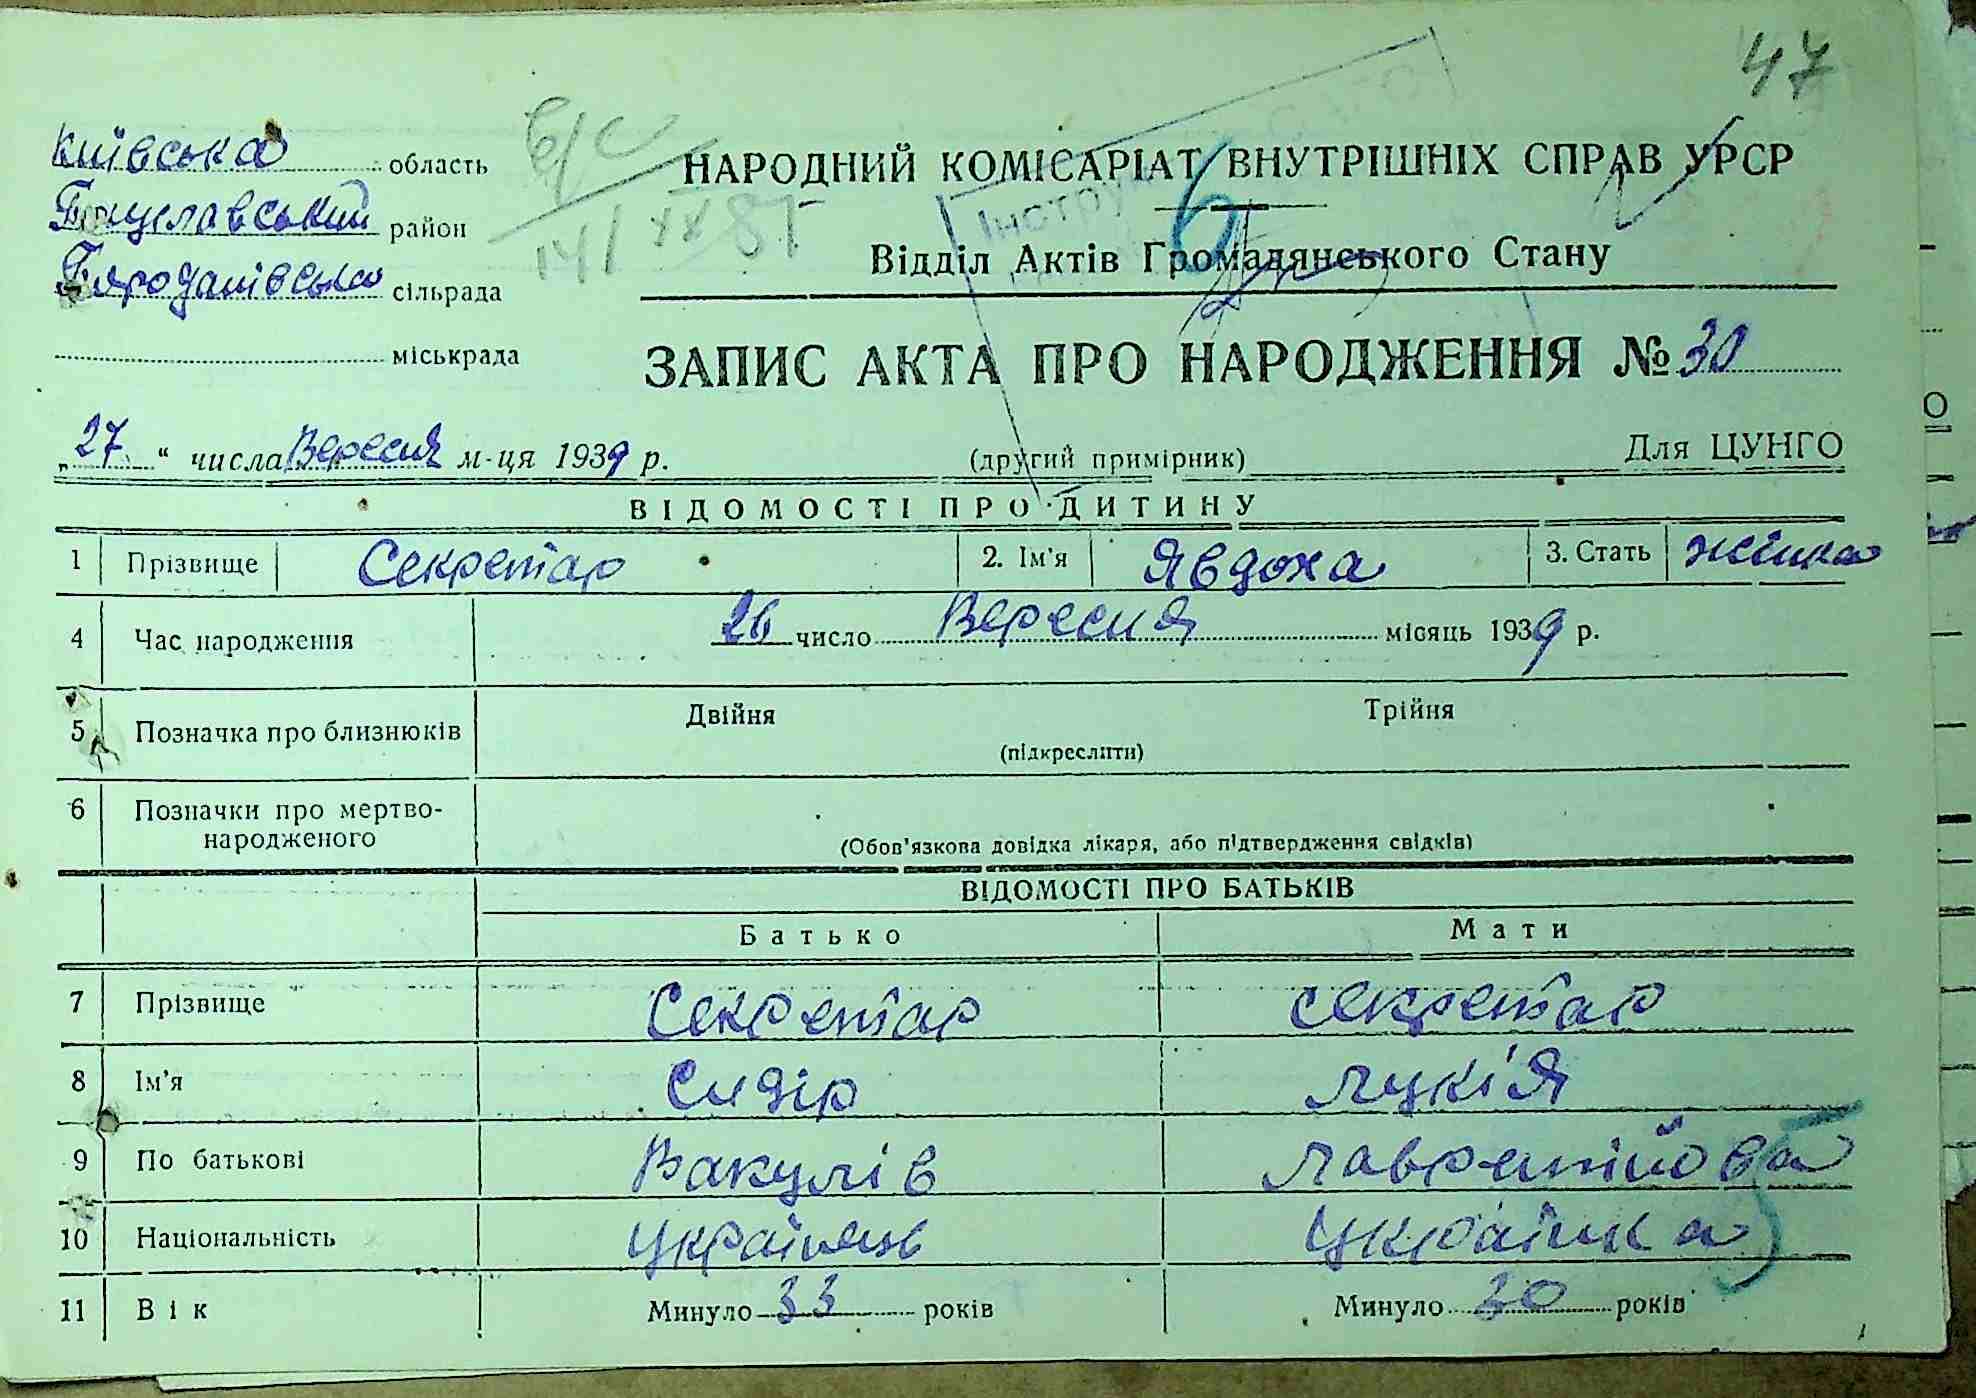 47
Київська область
Богуславський район
Бороданівська сільрада
міськрада
НАРОДНИЙ КОМІСАРІАТ ВНУТРІШНІХ СПРАВ УРСР
6
Відділ Актів Громадянського Стану
ЗАПИС АКТА ПРО НАРОДЖЕННЯ № 30
„27“ числа Вересня м-ця 1939 р.
(другий примірник)
Для ЦУНГО
ВІДОМОСТІ ПРО ДИТИНУ
1 Прізвище Секретар 2. Ім'я Явдоха 3. Стать жінка
4 Час народження 26 число Вересня місяць 1939 р.
5 Позначка про близнюків Двійня Трійня
(підкреслити)
6 Позначки про мертво-
народженого
(Обов'язкова довідка лікаря, або підтвердження свідків)
ВІДОМОСТІ ПРО БАТЬКІВ
Батько Мати
7 Прізвище Секретар секретар
8 Ім'я Сидір Лукія
9 По батькові Вакулів Лаврентійова
10 Національність Українець Українка
11 Вік Минуло 33 років Минуло 30 років